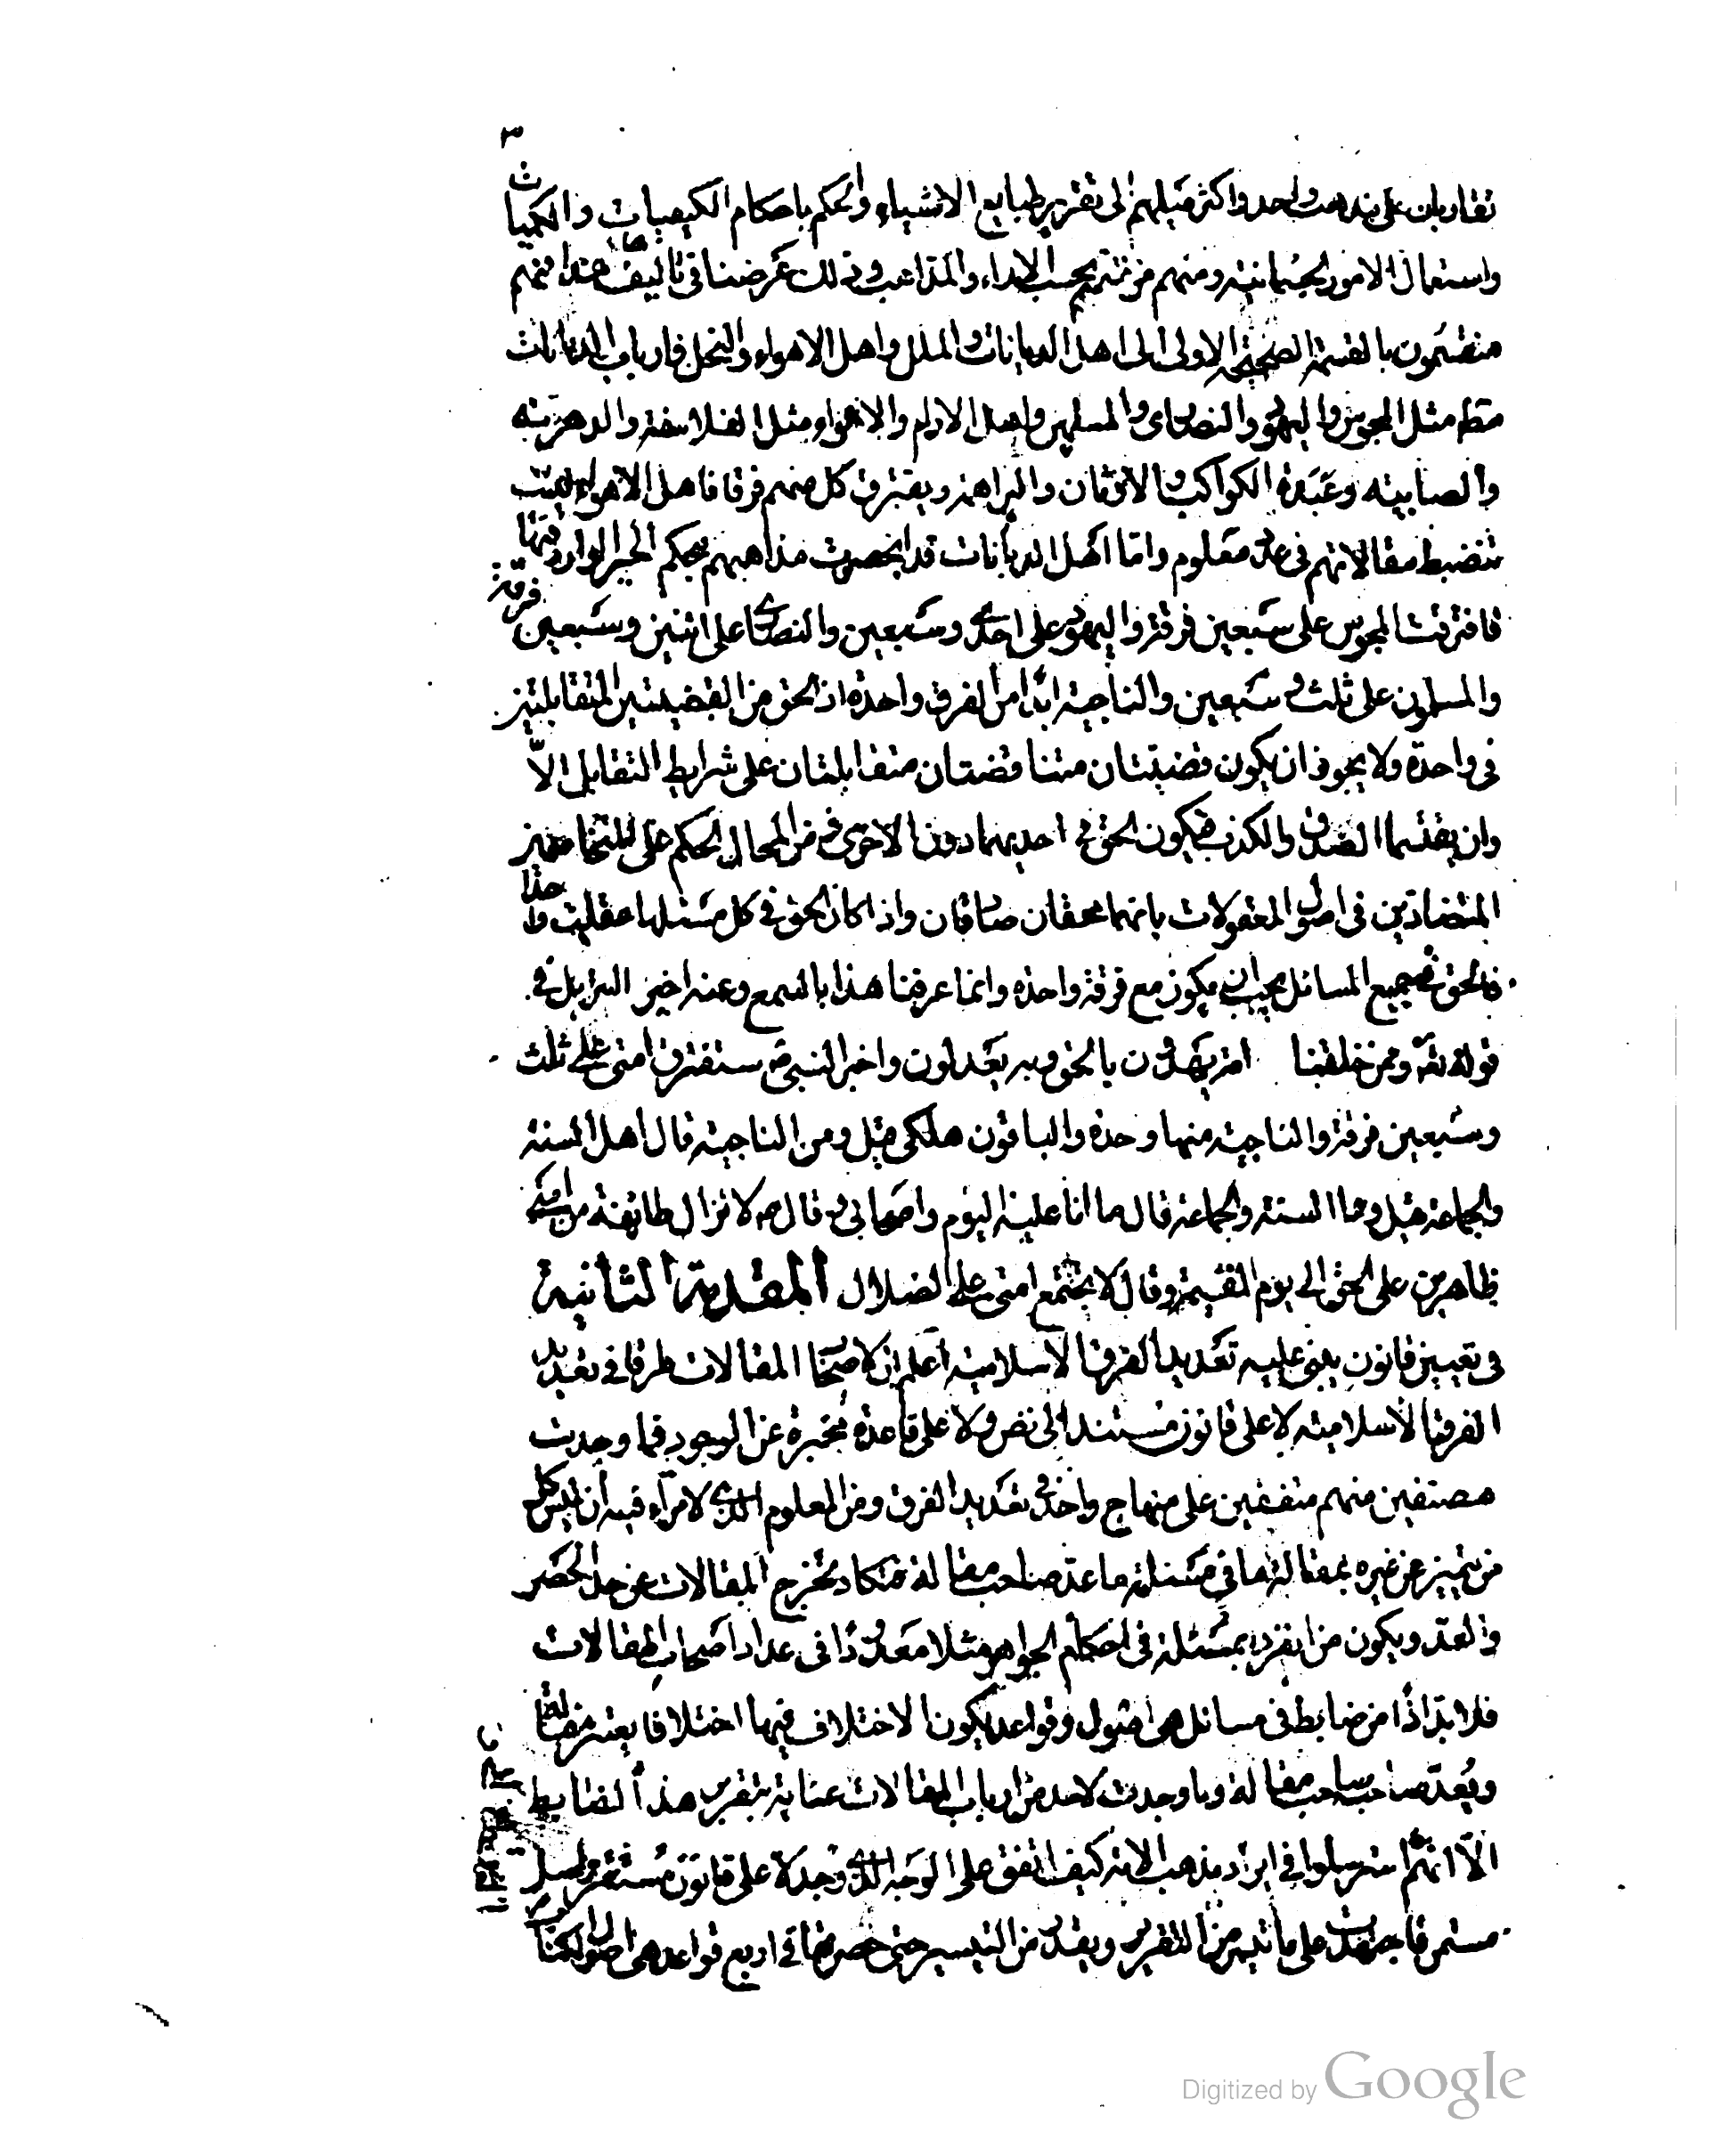 ٣
تقاربان على مذهب واحد واكثر ميلهم الى تقرير طبايع الاشياء والحكم باحكام الكيفيات والكميات
واستعمال الامور الجسمانية ومنهم من قسم بحسب الاراء والمذاهب وذلك غرضنا فى تاليف هذا فهم
منقسمون بالقسمة الصحيحة الاولى الى اهل الديانات والملل واهل الاهواء والنحل فارباب الديانات
مط مثل المجوس واليهود والنصارى والمسلمين واهل الاراء والاهواء مثل الفلاسفة والدهرية
والصابية وعبدة الكواكب والاوثان والبراهمة ويفترق كل منهم فرقا فاهل الاهواء ليست
تنضبط مقالاتهم فى عدد معلوم واما اهل الديانات قد انحصرت مذاهبهم بحكم الخبر الوارد فيها
فافترقت المجوس على سبعين فرقة واليهود على احدى وسبعين والنصارى على اثنين وسبعين فرقة
والمسلمون على ثلث وسبعين والناجية ابدا من الفرق واحدة اذ الحق من القضيتين المتقابلتين
فى واحدة ولا يجوز ان يكون قضيتان متناقضتان متقابلتان على شرايط التقابل الا
وان يقتسما الصدق والكذب فيكون الحق فى احديهما دون الاخرى ومن المحال الحكم على المتخاصمين
المتضادين فى اصول المعقولات بانهما محقان صادقان واذا كان الحق فى كل مسئلة عقلية واحدا
فالحق فى جميع المسائل يجب ان يكون مع فرقة واحدة وانما عرفنا هذا بالسمع وعنه اخبر التنزيل فى
قوله تعه وممن خلقنا امة يهدون بالحق وبه يعدلون واخبر النبى ص ستفترق امتى على ثلث
وسبعين فرقة والناجية منها وحدة والباقون هلكى قيل ومن الناجية قال اهل السنة
والجماعة قيل وما السنة والجماعة قال ما انا عليه اليوم واصحابى وقال ص لا تزال طائفة من امتى
ظاهرين على الحق الى يوم القيمة وقال لا يجتمع امتى على الضلال المقدمة الثانية
فى تعيين قانون يبنى عليه تعديد الفرق الاسلامية اعلم ان لاصحاب المقالات طرقا فى تعديد
الفرق الاسلامية لا على قانون مستند الى نص ولا على قاعدة مخبرة عن الوجود فما وجدت
مصنفين منهم متفقين على منهاج واحد فى تعديد الفرق ومن المعلوم الذى لا مراء فيه ان ليس كل
من تميز عن غيره بمقالة ما فى مسئلة ما عد صاحب مقالة فتكاد تخرج المقالات عن حد الحصر
والعد ويكون من انفرد بمسئلة فى احكام الجواهر مثلا معدودا فى عداد اصحاب المقالات
فلا بد اذا من ضابط فى مسائل هى اصول وقواعد يكون الاختلاف فيها اختلافا يعتبر مقالة
ويعد صاحبه صاحب مقالة وما وجدت لاحد من ارباب المقالات عناية بتقرير هذا الضابط
الا انهم استرسلوا فى ايراد مذهب الامة كيف اتفق على الوجه الذى وجد لا على قانون مستقر واصل
مستمر فاجتهدت على ما تيسر من التقرير ويقدر من التيسير حتى حصرتها فى اربع قواعد هى اصول
Digitized by Google